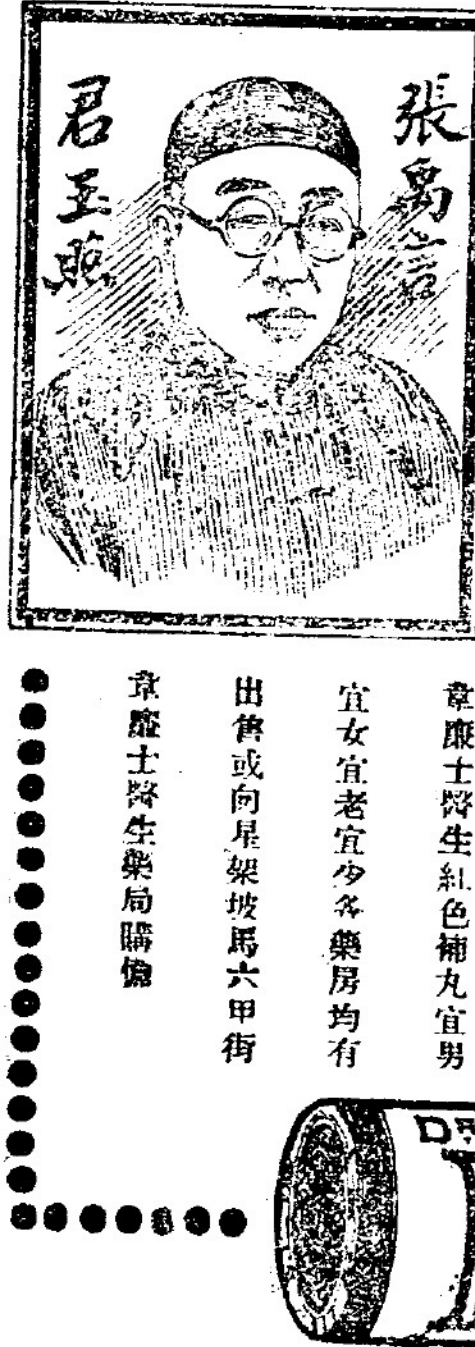 張禹言
君玉照
韋廉士醫生紅色補丸宜男
宜女宜老宜少各藥房均有
出售或向星架坡馬六甲街
韋廉士醫生藥局購
D